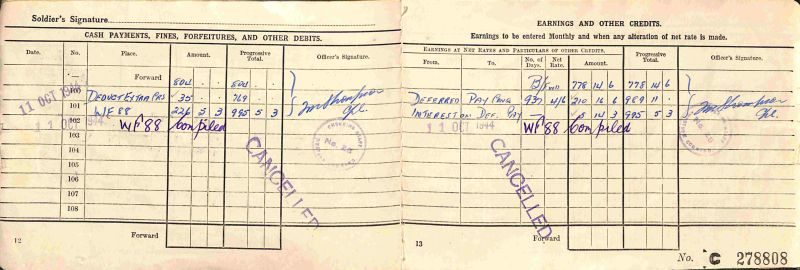 Soldier's Signature
CASH PAYMENTS, FINES, FORFEITURES, AND OTHER DEBITS.
Date. No. Place. Amount. Progressive Total. Officer's Signature.
— Forward 804 . . 804 . .
11 OCT 1944 100 Deduct Extra 35 . . 769 . .
101 WE 88 226 5 3 995 5 3
11 OCT 1944 102 WF 88 Compiled
103
104
105
106
107
108
CANCELLED
No. 28
Forward
12
EARNINGS AND OTHER CREDITS.
Earnings to be entered Monthly and when any alteration of net rate is made.
EARNINGS AT NET RATES AND PARTICULARS OF OTHER CREDITS.
From. To. No. of Days. Net Rate. Amount. Progressive Total. Officer's Signature.
B/Fwd 778 14 6 778 14 6
Deferred Pay 937 4/6 210 16 6 989 11 .
Interest on Def. Pay 5 14 3 995 5 3
11 OCT 1944 WF 88 Compiled
CANCELLED
Forward
13
No. C 278808